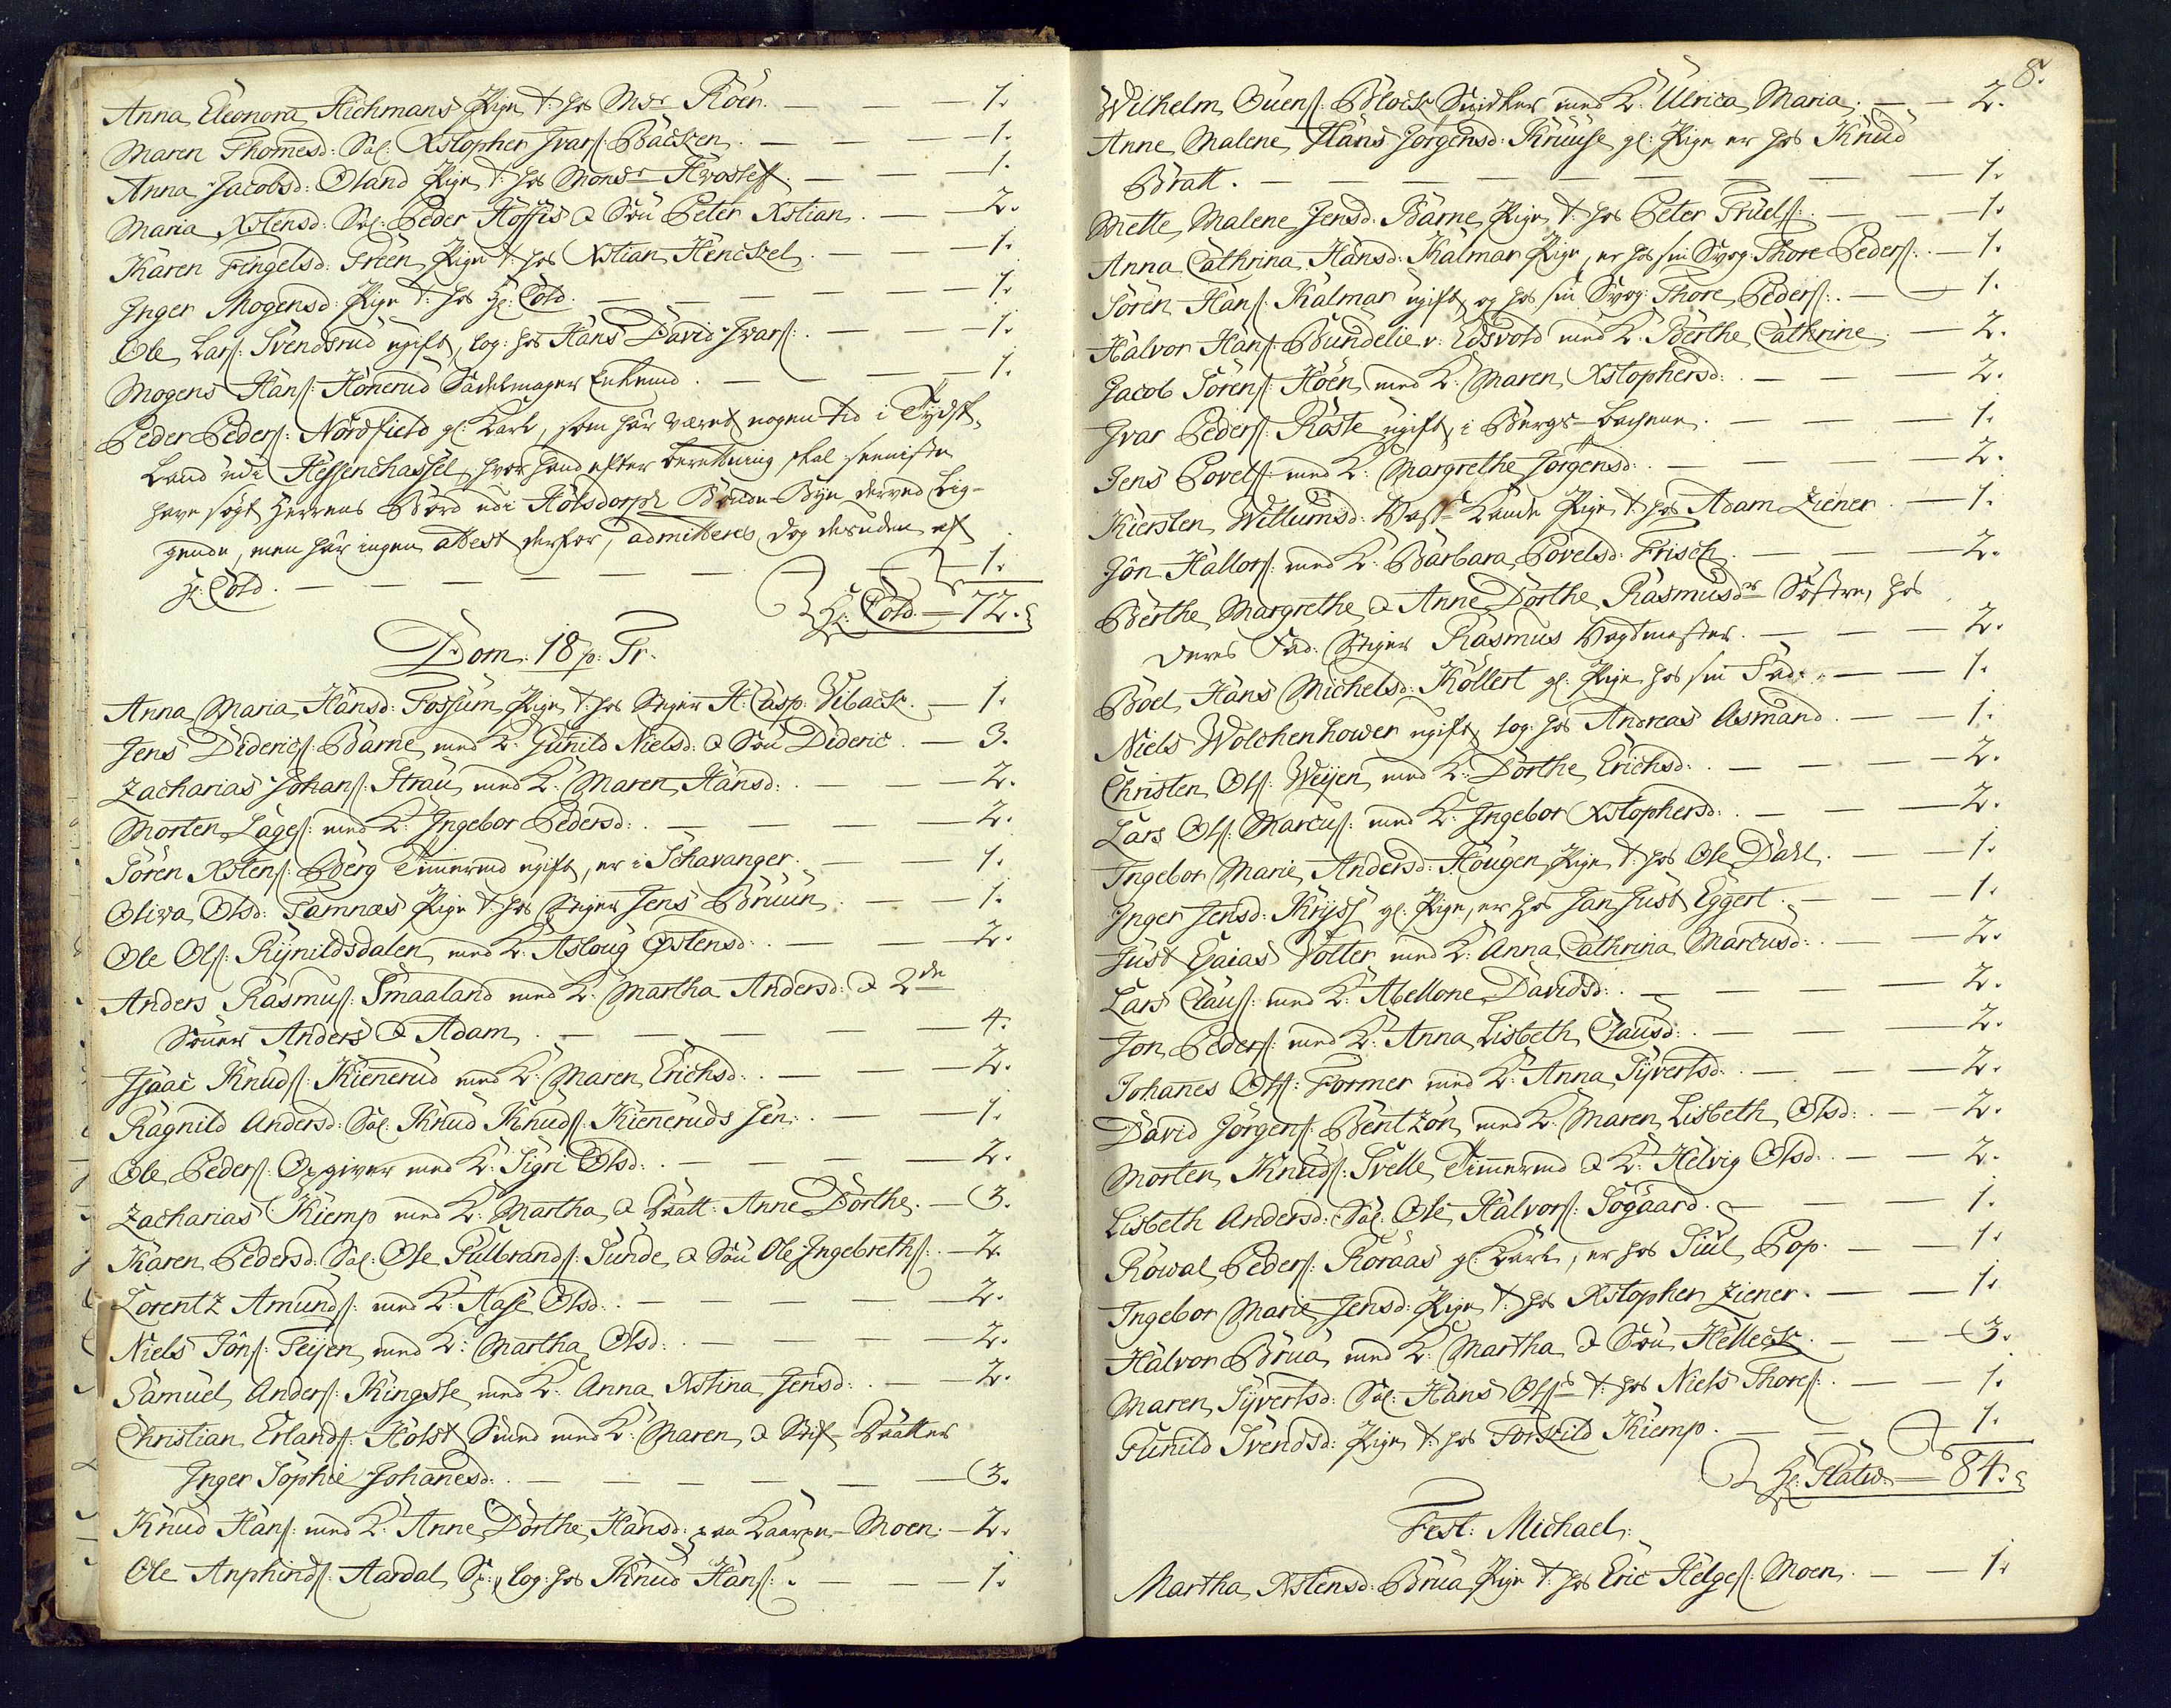 Anna Eleonora Hichmans Pige t: hos Msr Röen. — — — 1.
Maren Thomesd: Sal: Xstopher Ivars: Bäcken. — — — 1.
Anna Jacobsd: Öland Pige t: hos Monsr — — — 1.
Maria Xstensd: Sal: Peder Hoffis & Sön Peter Xstian. — — 2.
Karen Fingelsd: Treen Pige t: hos Xstian Henckel. — — 1.
Inger Mogensd: Pige t: hos Hr: Cold. — — — — 1.
Ole Lars: Svendsrud ugift, log: hos Hans David Ivars:. — — — 1.
Mogens Hans: Hönerud Sadelmager Enkemd. — — — — 1.
Peder Peders: Nordfield gl: Karl, som har været nogen tid i Tydsk
Land udi Hessenchassel, hvor hand efter beretning skal seeniste
have søgt Herrens Bord udi Holsdorph Bonde-Bye derved Lig-
gende, men har ingen attest derfor, admitteres dog desuden af
Hr: Cold. — — — — — — — 1.
Hr: Cold — 72.
Dom: 18 p: Tr.
Anna Maria Hansd: Fossum Pige t: hos Stiger H: Casp: Vibach. — 1.
Jens Diderics: Barne med K: Gunild Nielsd: & Sön Dideric. — 3.
Zacharias Johans: Strau med K: Maren Hansd:. — — 2.
Morten Lages: med K: Ingebor Pedersd:. — — — — 2.
Sören Xstens: Berg Timermd ugift, er i Schavanger. — — 1.
Oliva Olsd: Tamnæs Pige t: hos Stiger Jens Bruun. — — 1.
Ole Ols: Rynildsdalen med K: Asloug Östensd:. — — 2.
Anders Rasmus: Smaaland med K: Martha Andersd: & 2de
Sönner Anders & Adam. — — — — — 4.
Isaac Knuds: Kienerud med K: Maren Erichsd:. — — — 2.
Ragnild Andersd: Sal: Knud Knuds: Kieneruds Sen:. — — 1.
Ole Peders: Opgiver med K: Sigri Olsd:. — — — — 2.
Zacharias Kiemp med K: Martha & Daatt: Anne Dorthe. — 3.
Karen Pedersd: Sal: Ole Gulbrands: Sunde & Sön Ole Ingebreths:. — 2.
Lorentz Amunds: med K: Aase Olsd:. — — — — 2.
Niels Jöns: Feijen med K: Martha Olsd:. — — — — 2.
Samuel Anders: Kingste med K: Anna Xstina Jensd:. — — 2.
Christian Erlands: Holst Smed med K: Maren & Stif-Daatter
Inger Sophie Johanesd:. — — — — — 3.
Knud Hans: med K: Anne Dorthe Hansd: paa Kaarpe-Moen. — 2.
Ole Anphinds: Aardal log: hos Knud Hans:. — — — 1.
8.
Wilhelm Ouens: Block Snidker med K: Ulrica Maria. — — 2.
Anne Malene Hans Jörgensd: Kruuse gl: Pige er hos Knud
Bratt. — — — — — — — — 1.
Mette Malene Jensd: Barne Pige t: hos Peter Truels:. — — 1.
Anna Cathrina Hansd: Kalmar Pige, er hos sin Svog: Thore Peders:. — 1.
Sören Hans: Kalmar ugift, og hos sin Svog: Thore Peders:. — 1.
Halvor Hans: Bundelie v: Edsvold med K: Berthe Cathrine. — 2.
Jacob Sörens: Höen med K: Maren Xstophersd:. — — — 2.
Ivar Peders: Röste ugift, i Bergs-. — — — 1.
Jens Povels: med K: Margrethe Jörgensd:. — — — — 2.
Kiersten Willumsd: Vasf-Kande Pige t: hos Adam Ziener. — 1.
Jön Hallors: med K: Barbara Povelsd: Frisch. — — — 2.
Berthe Margrethe & Anne Dorthe Rasmusdr Söstre, hos
deres Fad: Stiger Rasmus Vagtmester. — — — 2.
Boel Hans Michelsd: Köllert gl: Pige hos sin Fad:. — — 1.
Niels Wolchenhower ugift, log: hos Andreas Asmand. — — 1.
Christen Ols: Weijen med K: Dorthe Erichsd:. — — — 2.
Lars Ols: Marcus: med K: Ingebor Xstophersd:. — — — 2.
Ingebor Marie Andersd: Hougen Pige t: hos Ole Dahl. — — 1.
Inger Jensd: Kryss gl: Pige, er hos Jan Just Eggert. — — 1.
Just Esaias Völler med K: Anna Cathrina Marcusd:. — — 2.
Lars Claus: med K: Abellone Davidsd:. — — — — 2.
Jon Peders: med K: Anna Lisbeth Clausd:. — — — 2.
Johanes Ols: Former med K: Anna Syvertsd:. — — — 2.
David Jörgens: Bentzön med K: Maren Lisbeth Olsd:. — — 2.
Morten Knuds: Svelle Timermd & K: Helvig Olsd:. — — 2.
Lisbeth Andersd: Sal: Ole Halvors: Sögaard. — — — 1.
Rowal Peders: Roraas gl: Karl, er hos Siul Pop. — — 1.
Ingebor Marie Jensd: Pige t: hos Xstopher Ziener. — — 1.
Halvor Brua med K: Martha & Sön Helleck. — — 3.
Maren Syvertsd: Sal: Hans Ols: t: hos Niels Thores:. — — 1.
Gunild Svendsd: Pige t: hos Torkild Kiemp. — — — 1.
Hr: Flatw — 84.
Fest: Michael:
Martha Xstensd: Brua Pige t: hos Eric Helges: Moen. — — 1.